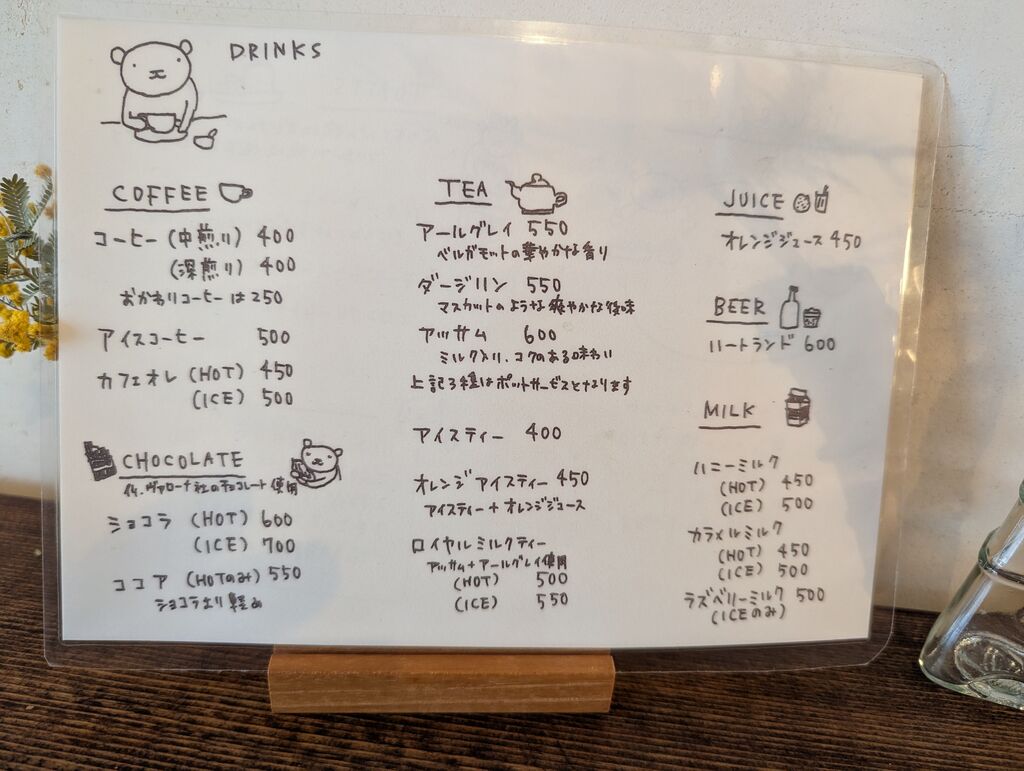 DRINKS
COFFEE
コーヒー (中煎り) 400
(深煎り) 400
おかわりコーヒーは250
アイスコーヒー 500
カフェオレ (HOT) 450
(ICE) 500
CHOCOLATE
仏.ヴァローナ社のチョコレート使用
ショコラ (HOT) 600
(ICE) 700
ココア (HOTのみ) 550
ショコラより軽め
TEA
アールグレイ 550
ベルガモットの華やかな香り
ダージリン 550
マスカットのような爽やかな後味
アッサム 600
ミルク入り、コクのある味わい
上記3種はポットサービスとなります
アイスティー 400
オレンジアイスティー 450
アイスティー+オレンジジュース
ロイヤルミルクティー
アッサム+アールグレイ使用
(HOT) 500
(ICE) 550
JUICE
オレンジジュース 450
BEER
ハートランド 600
MILK
ハニーミルク
(HOT) 450
(ICE) 500
カラメルミルク
(HOT) 450
(ICE) 500
ラズベリーミルク 500
(ICEのみ)